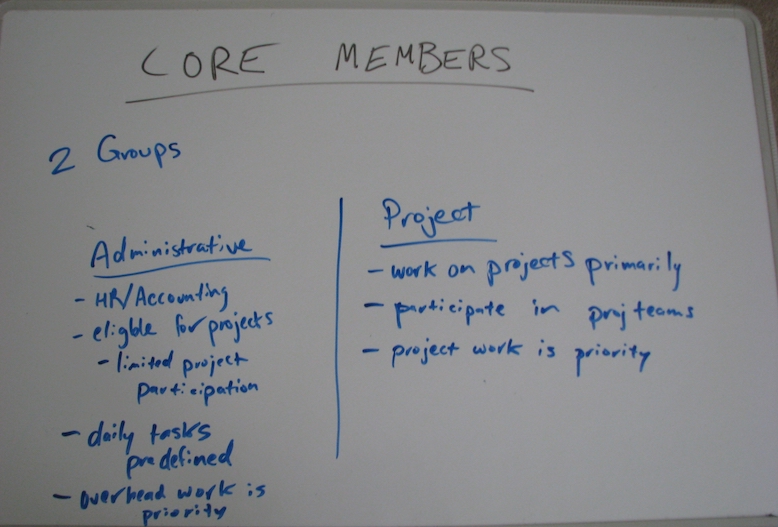 CORE MEMBERS
2 Groups
Administrative
- HR/Accounting
- eligble for projects
- limited project
participation
- daily tasks
predefined
- overhead work is
priority
Project
- work on projects primarily
- participate in proj teams
- project work is priority